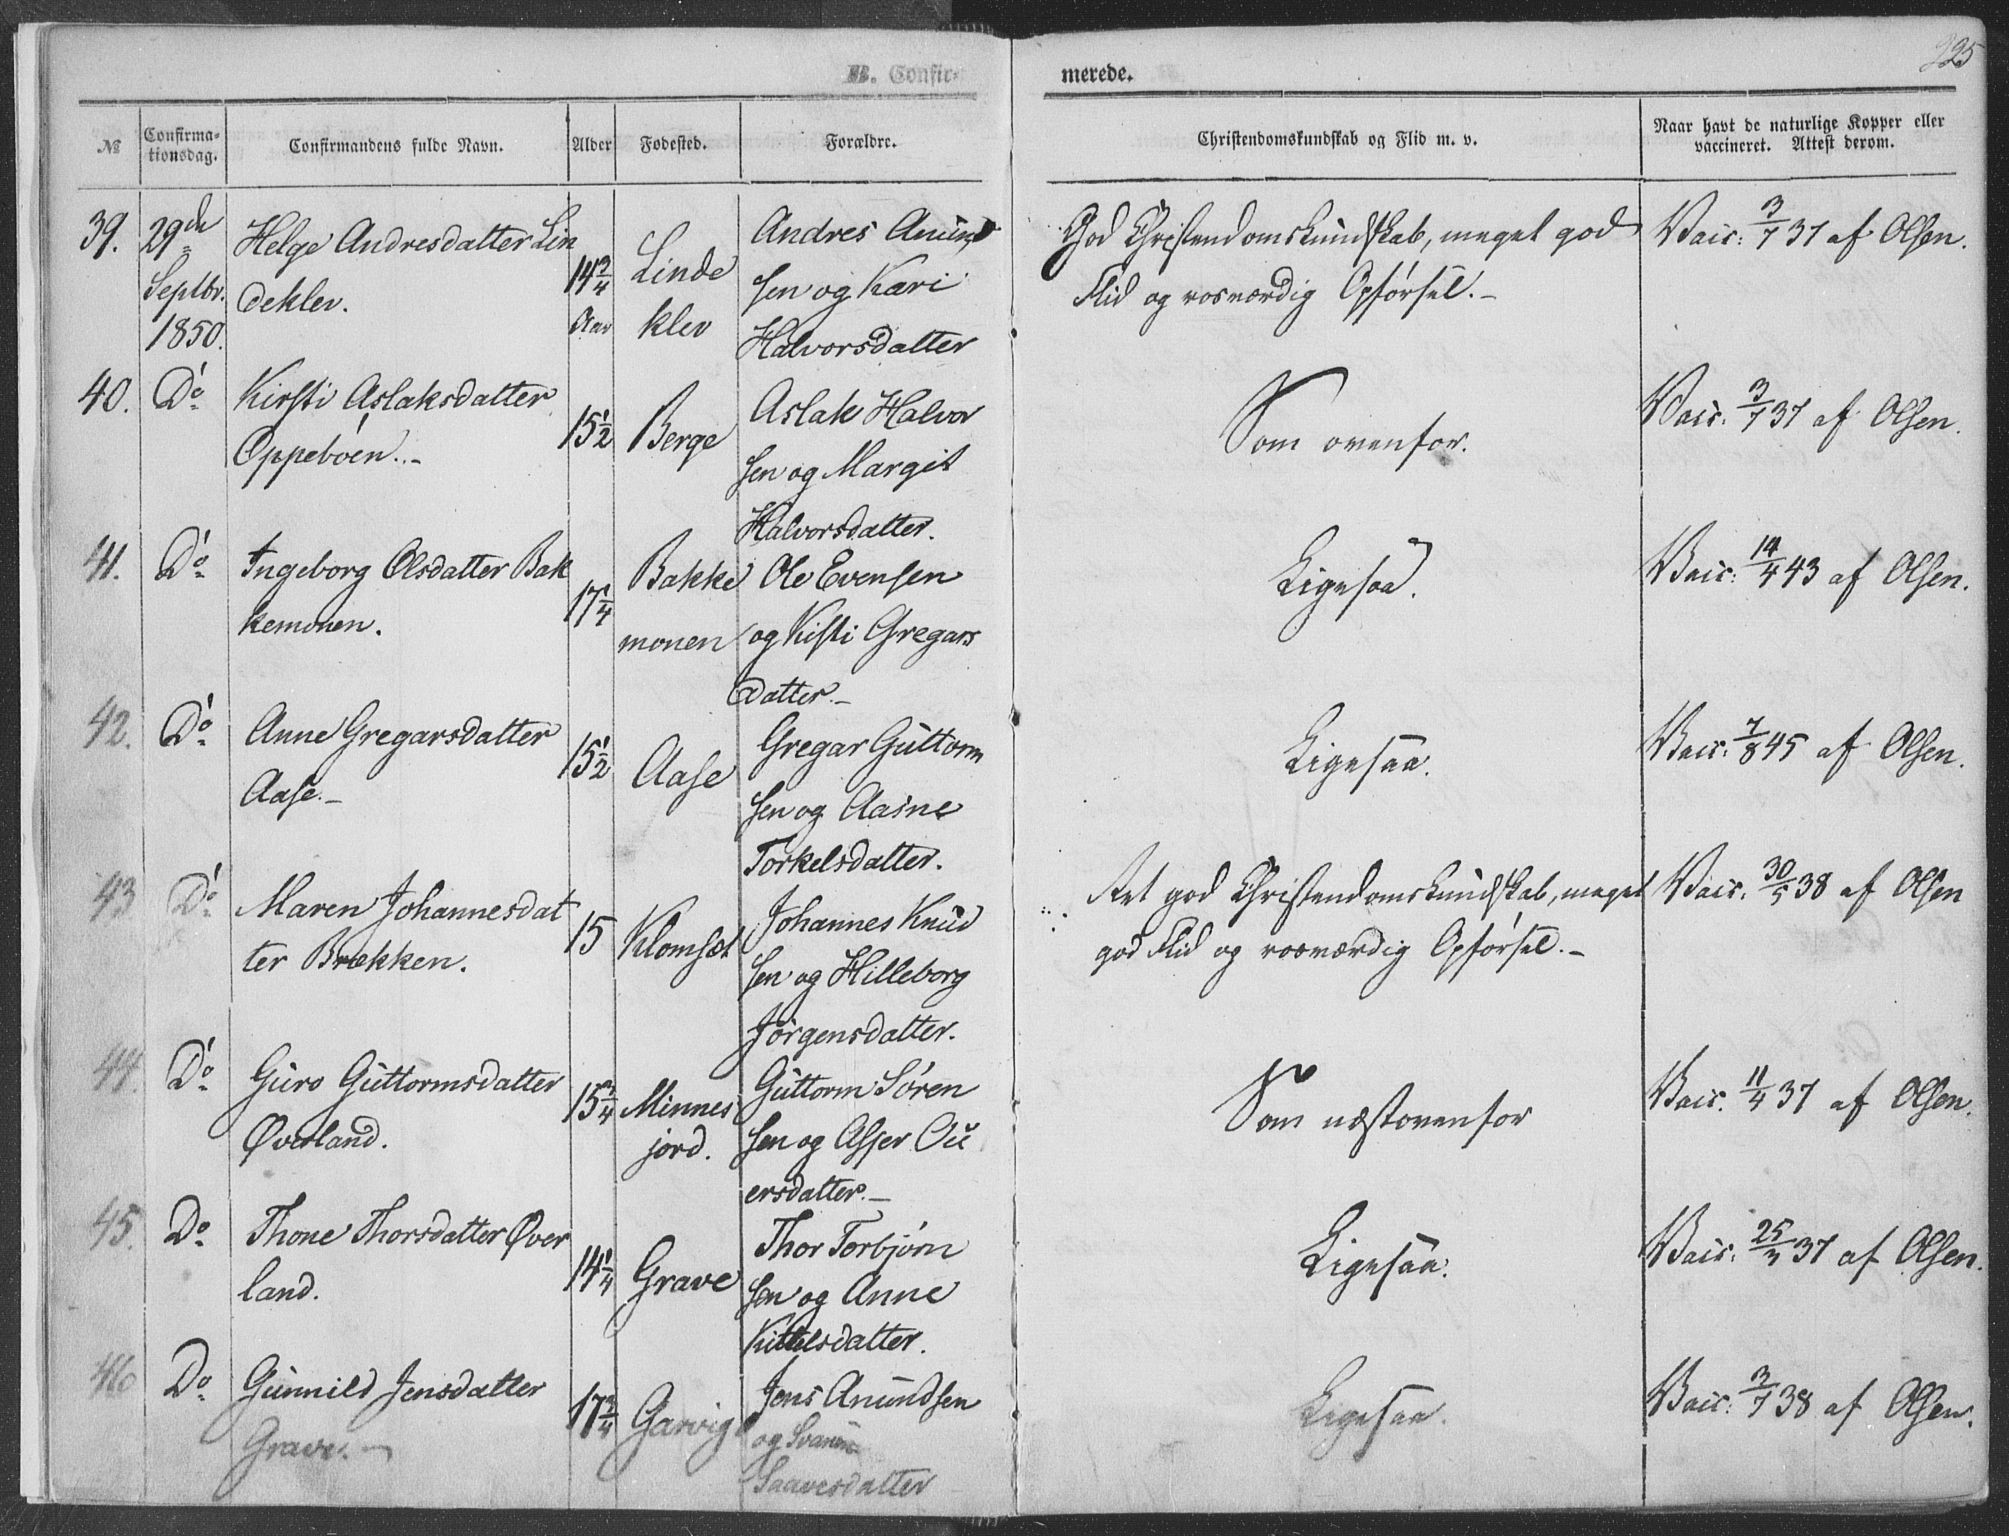 225
B. Confir-
merede.
№
Confirma-
tionsdag.
Confirmandens fulde Navn.
Alder
Fødested.
Forældre.
Christendomskundskab og Flid m. v.
Naar havt de naturlige Kopper eller
vaccineret. Attest derom.
39.
29de
Septbr.
1850.
Helge Andresdatter Lin
deklev.
14 3/4
Aar
Linde
klev
Andres Anund
sen og Kari
Halvorsdatter
God Christendomskundskab, meget god
Flid og rosværdig Opførsel.-
Vacc: 3/7 37 af Olsen.
40.
Do
Kirsti Aslaksdatter
Oppebøen.-
15 1/2
Berge
Aslak Halvor
sen og Margit
Halvorsdatter.
Som ovenfor.
Vacc. 3/7 37 af Olsen.
41.
Do
Ingeborg Olsdatter Bak
kemonen.
17 1/4
Bakke
monen
Ole Evensen
og Kisti Gregars
datter.-
Ligesaa.
Vacc: 14/4 43 af Olsen.
42.
Do
Anne Gregarsdatter
Aase.-
15 1/2
Aase
Gregar Guttorm
sen og Aasne
Torkelsdatter.
Ligesaa.
Vacc: 7/8 45 af Olsen.
43
Do
Maren Johannesdat
ter Brekken.
15
Klomset
Johannes Knud
sen og Hilleborg
Jörgensdatter.
Ret god Christendomskundskab, meget
god Flid og rosværdig Opførsel.-
Vacc. 30/5 38 af Olsen
44.
Do
Guro Guttormsdatter
Øverland.
15 1/4
Minnes
jord.
Guttorm Sören
sen og Asser Ou
ersdatter.-
Som næstovenfor
Vacc. 11/4 37 af Olsen.
45.
Do
Thone Thorsdatter Øver
land.
14 1/4
Grave
Thor Torbjørn
sen og Anne
Kittelsdatter.
Ligesaa.
Vacc: 25/3 37 af Olsen.
46
Do
Gunnild Jensdatter
Grave.-
17 3/4
Garvig
Jens Anundsen
og
Saavesdatter
Ligesaa.
Vacc: 3/7 38 af Olsen.